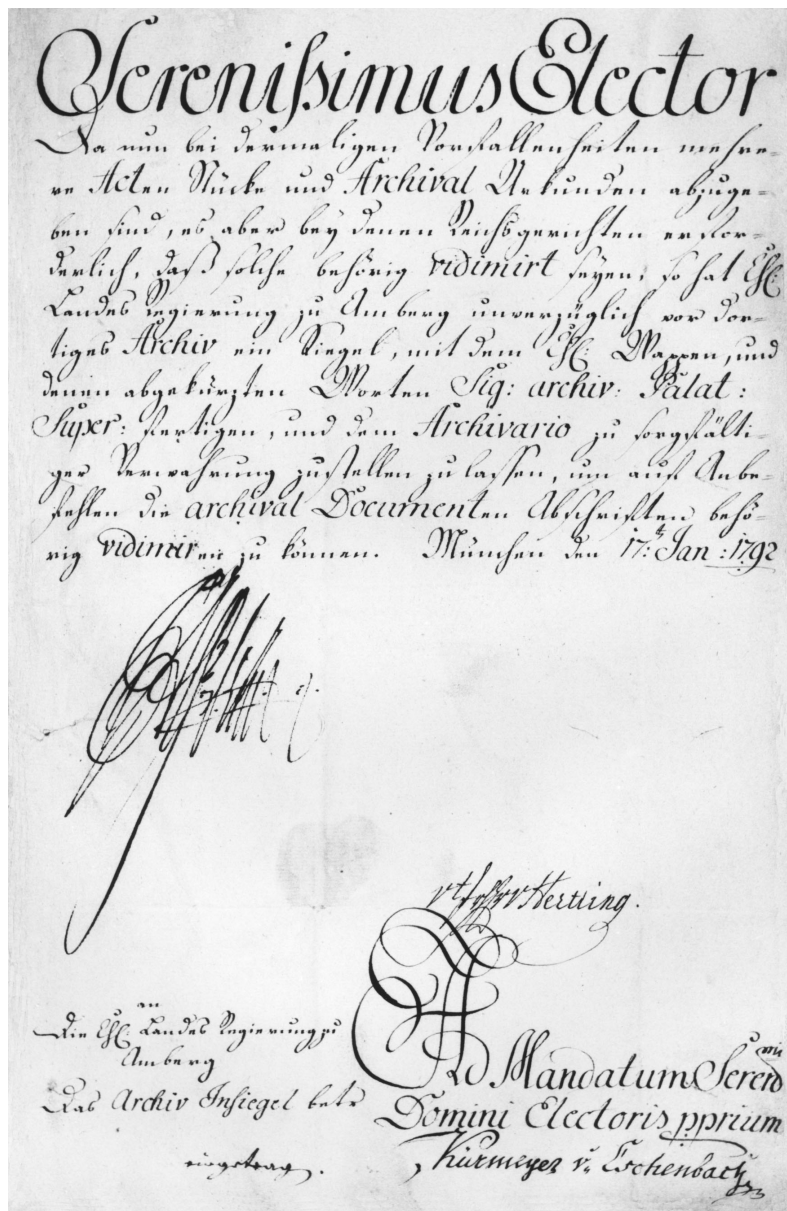 Serenissimus Elector
Da nun bei dermaligen Vorfallenheiten mehre-
re Acten Stücke und Archival Urkunden abzuge-
ben sind, es aber bey denen Reichsgerichten erfor-
derlich, daß solche behörig vidimirt seyen, so hat Chf:
Landes Regierung zu Amberg unverzüglich vor dor-
tiges Archiv ein Siegel, mit dem Chf: Wappen, und
denen abgekürzten Worten Sig: archiv: Palat:
Super: fertigen, und dem Archivario zu sorgfälti-
ger Verwahrung zustellen zu lassen, um auf Anbe-
fehlen die archival Documenten Abschriften behö-
rig vidimiren zu können. München den 17:t Jan: 1792
vt v Hertling.
an
Die Chf: Landes Regierung zu
Amberg
Das Archiv Insiegel betr
eingetrag.
Ad Mandatum Serenmi
Domini Electoris pprium
Kurmeyer v. Eschenbach